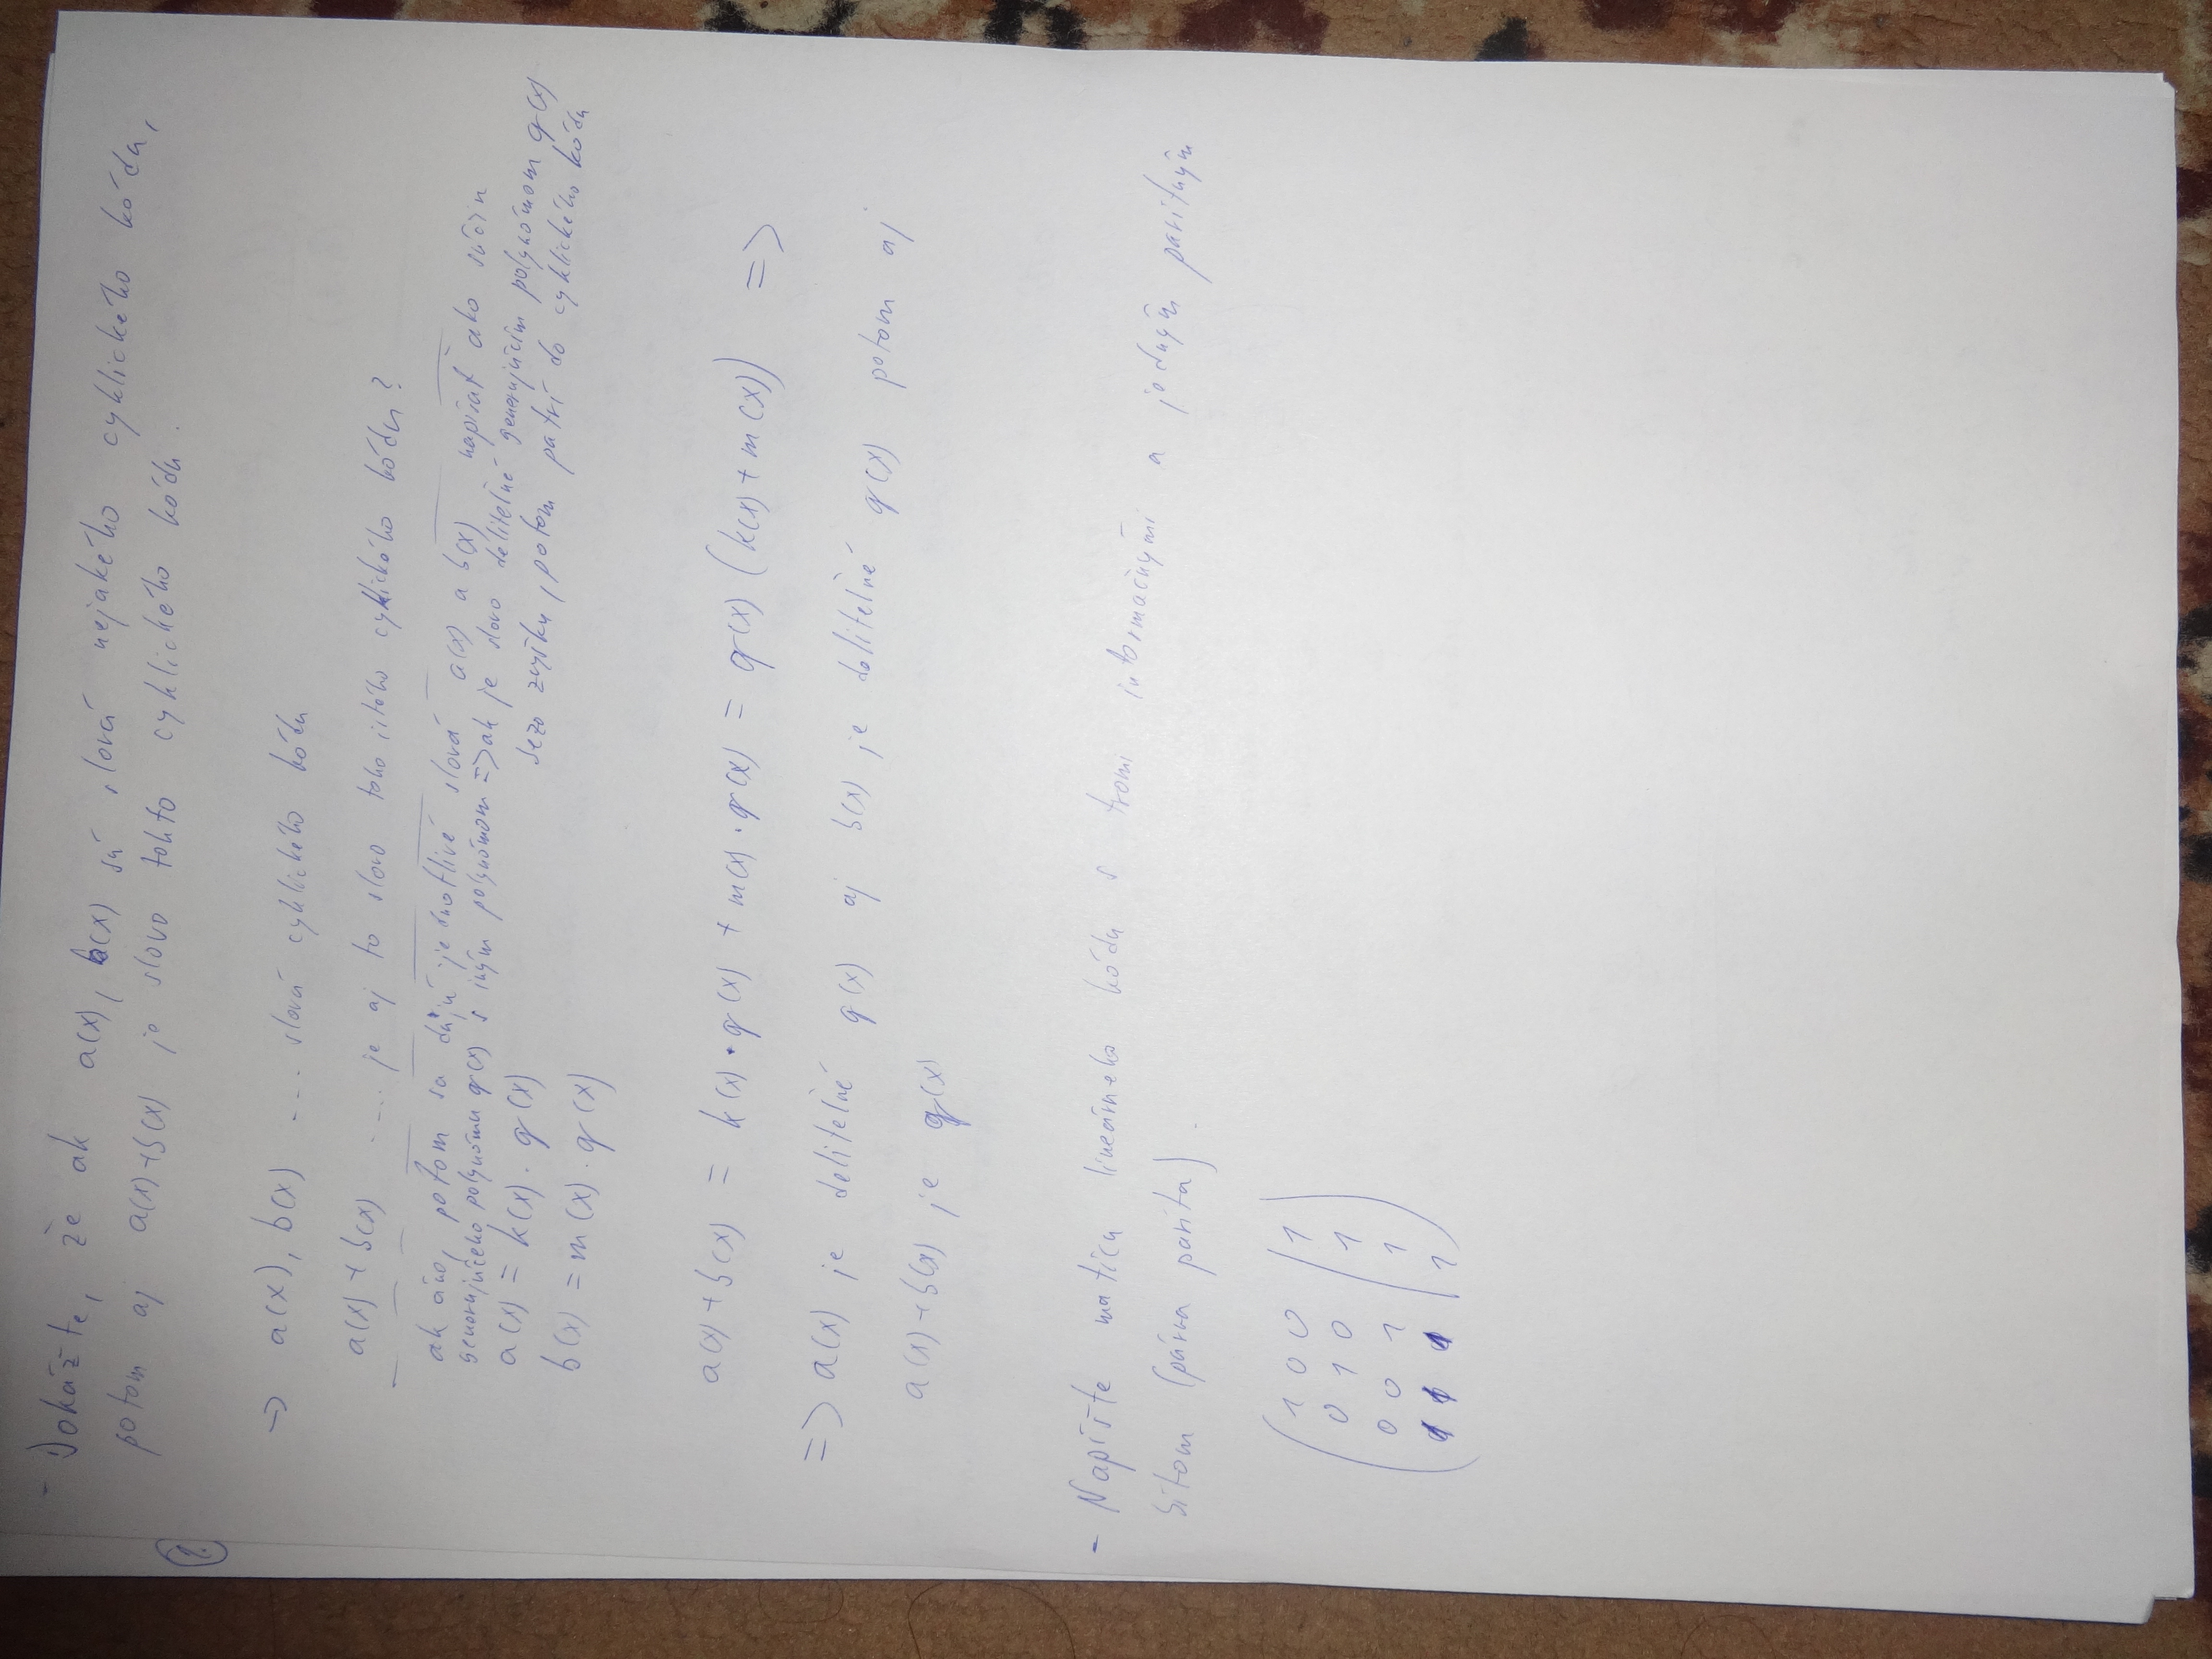 - Dokážte, že ak a(x), b(x) sú slová nejakého cyklického kódu,
potom aj a(x)+b(x) je slovo tohto cyklického kódu.
→ a(x), b(x) ... slová cyklického kódu
a(x) + b(x) .... je aj to slovo toho istého cyklického kódu?
ak áno, potom sa dajú jednotlivé slová a(x) a b(x) napísať ako súčin
generujúceho polynómu g(x) s iným polynómom => ak je slovo deliteľné generujúcim polynómom g(x)
bezo zvyšku, potom patrí do cyklického kódu
a(x) = k(x) . g(x)
b(x) = m(x) . g(x)
a(x) + b(x) = k(x) . g(x) + m(x) . g(x) = g(x) (k(x) + m(x)) =>
=> a(x) je deliteľné g(x) aj b(x) je deliteľné g(x) potom aj
a(x)+b(x) je g(x)
- Napíšte maticu lineárneho kódu s tromi informačnými a jedným paritným
bitom (párna parita).
( 1 0 0 | 1 )
0 1 0 | 1
0 0 1 | 1
1 1 1 | 1